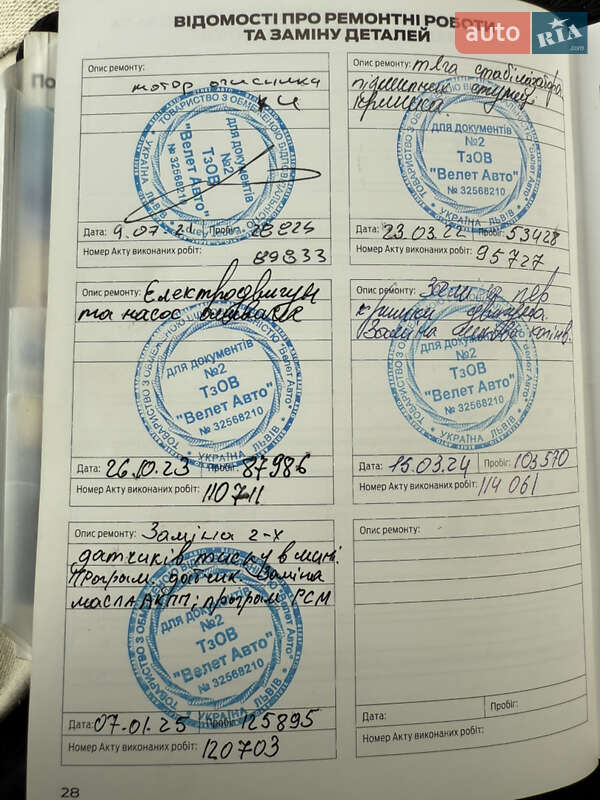 ВІДОМОСТІ ПРО РЕМОНТНІ РОБОТИ
ТА ЗАМІНУ ДЕТАЛЕЙ
auto RIA.com
По
Опис ремонту:
мотор
ТОВАРИСТВО З ОБМЕЖЕНОЮ ВІДПОВІДАЛЬНІСТЮ "Велет Авто"
УКРАЇНА ЛЬВІВ
для документів
№2
ТзОВ
"Велет Авто"
№ 32568210
Дата: 9.07.21 Пробіг:
Номер Акту виконаних робіт:
89833
Опис ремонту: тяга стабілізатора
підшипник ступиці
кришка
ТОВАРИСТВО З ОБМЕЖЕНОЮ ВІДПОВІДАЛЬНІСТЮ "Велет Авто"
УКРАЇНА ЛЬВІВ
для документів
№2
ТзОВ
"Велет Авто"
№ 32568210
Дата: 23.03.22 Пробіг: 53428
Номер Акту виконаних робіт: 95727
Опис ремонту: Електродвигун
та насос
ТОВАРИСТВО З ОБМЕЖЕНОЮ ВІДПОВІДАЛЬНІСТЮ "Велет Авто"
УКРАЇНА ЛЬВІВ
для документів
№2
ТзОВ
"Велет Авто"
№ 32568210
Дата: 26.10.23 Пробіг: 87986
Номер Акту виконаних робіт: 110711
Опис ремонту: пер
кришки двигуна.
Заміна
ТОВАРИСТВО З ОБМЕЖЕНОЮ ВІДПОВІДАЛЬНІСТЮ "Велет Авто"
УКРАЇНА ЛЬВІВ
для документів
№2
ТзОВ
"Велет Авто"
№ 32568210
Дата: 15.03.24 Пробіг: 103570
Номер Акту виконаних робіт: 114061
Опис ремонту: Заміна 2-х
датчиків тиску в шині.
Програм. датчик. Заміна
масла АКПП; програм PCM
ТОВАРИСТВО З ОБМЕЖЕНОЮ ВІДПОВІДАЛЬНІСТЮ "Велет Авто"
УКРАЇНА ЛЬВІВ
для документів
№2
ТзОВ
"Велет Авто"
№ 32568210
Дата: 07.01.25 Пробіг: 125895
Номер Акту виконаних робіт: 120703
Опис ремонту:
Дата: Пробіг:
Номер Акту виконаних робіт:
28